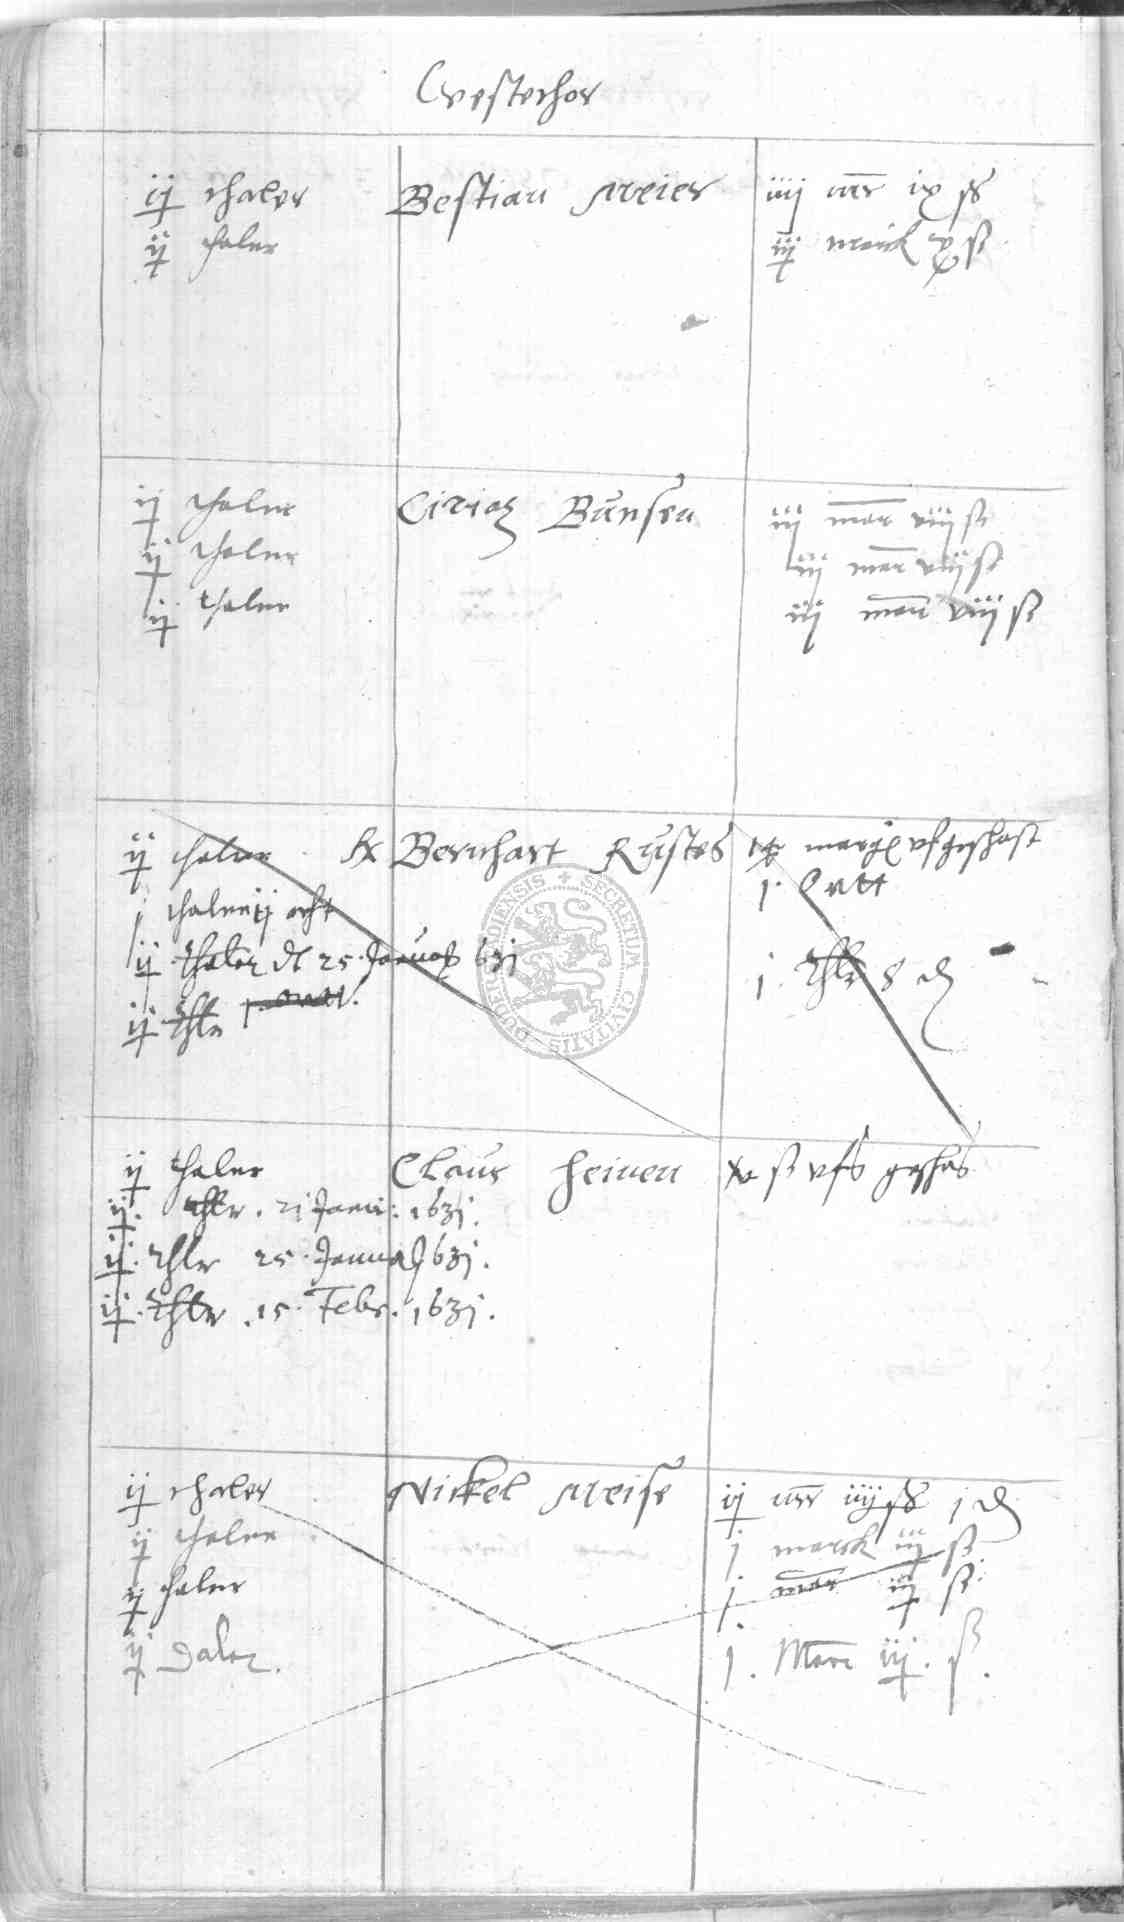 Westerthor
ij thaler Bestian Meier iiij mr ix ß
ij thaler iij marck x ß
ij thaler Ciriax Bunsen iij mar viij ß
ij thaler iij mar viij ß
ij thaler iij mar viij ß
ij thaler Bernhart Rustes marg
j thaler ij j Ortt
ij thaler d 25 Januar 631 j thlr 8 d
ij thlr j ortt
ij thaler Claus Heinen ß
ij. thlr. 21 Janu: 1631.
ij. thlr 25. Janua 631.
ij. thlr. 15. Febr. 1631.
ij thaler Nickel Meise ij mr iiij ß j d
ij thaler j marck iij ß
ij thaler j mar iij ß
ij Daler. j. Marc iij. ß.
SECRETUM CIVITATIS DUDERSTADIENSIS